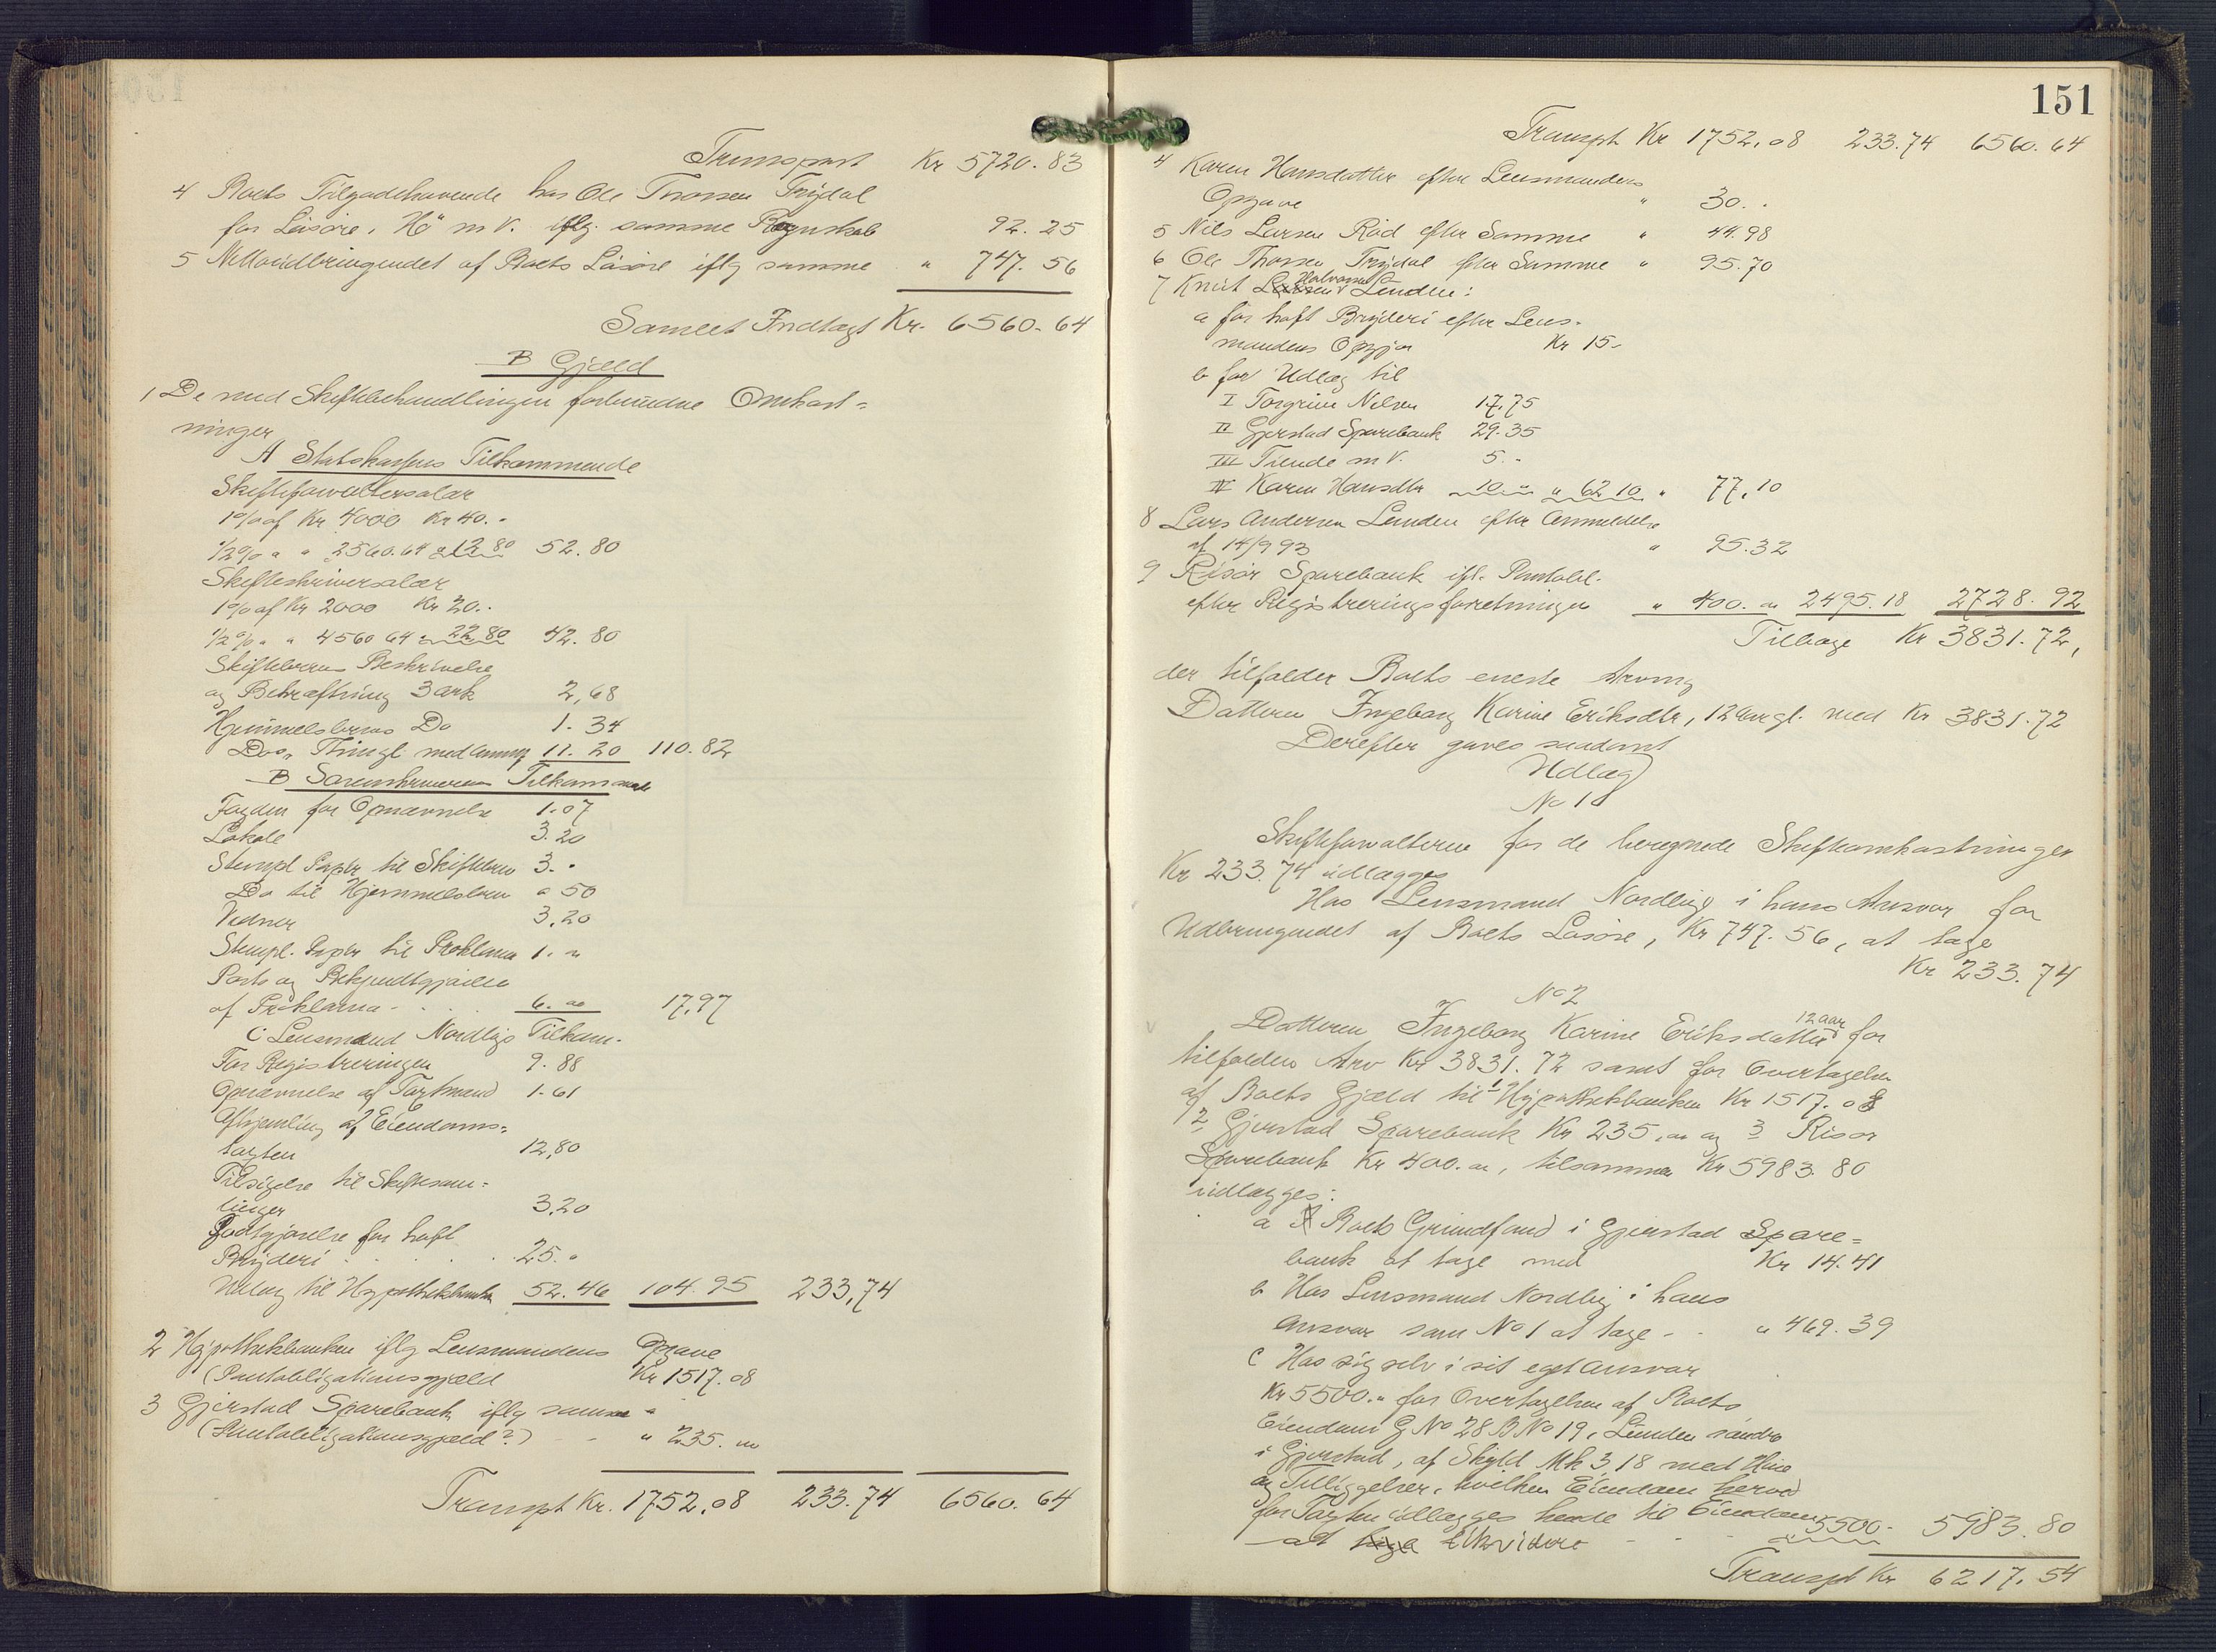 Transport Kr 5720.83
4 Boets Tilgodehavende hos Ole Thorsen Trydal
for Løsøre, Hö m V. iflg. samme Regnskab 92.25
5 Nettoudbringendet af Boets Løsøre iflg samme " 747.56
Samlet Indtægt Kr. 6560.64
B Gjæld
1 De med Skiftebehandlingen forbundne Omkost=
ninger
A Statskassens Tilkommende
Skifteforvaltersalær
1% af Kr 4000 Kr 40."
1/2% " " 2560.64 " 12 80 52.80
Skifteskriversalær
1% af Kr 2000 Kr 20."
1/2% " " 4560 64 " 22 80 42.80
Skiftebrevs Beskrivelse
og Bekræftning 3 ark 2,68
Hjemmelsbrevs Do 1.34
Do " Thingl. med Anmg 11.20 110.82
B Sorenskriverens Tilkommende
Fogden for Opnævnelse 1.07
Lokale 3.20
Stempl Papir til Skiftebrev 3."
Do til Hjemmelsbrev " 50
Vidner 3.20
Stempl. Papir til Proklama 1. "
Porto og Bekjendtgjørelse
af Proklama - . . . 6. " 17,97
C Lensmand Nordligs Tilkom.
For Registreringen 9.88
Opnævnelse af Taxtmænd 1.61
Afhjemling af Eiendoms=
taxten 12,80
Tilsigelse til Skiftesam=
linger 3,20
Godtgjørelse for havt
Bryderi . . . . . 25."
Udlæg til Hypothekbanken 52.46 104.95 233,74
2 Hypothekbanken iflg Lensmandens Opgave
(Pantobligationsgjæld Kr 1517.08
3 Gjerstad Sparebank iflg samme "
(Pantobligationsgjæld?) - - " 235. "
Transpt Kr. 1752,08 233.74 6560.64
151
Transpt Kr 1752,08 233.74 6560.64
4 Karen Hansdatter efter Lensmandens
Opgave " 30."
5 Nils Larsen Rød efter Samme " 44.98
6 Ole Thorsen Trydal efter Samme " 95.70
Halvorsen
7 Knut Larsen Lunden:
a for havt Bryderi efter Lens-
mandens Opgjør Kr 15-
b for Udlæg til
I Torgrim Nilsen 17,75
II Gjerstad Sparebank 29.35
III Tiende m V. 5."
IV Karen Hansdtr 10 " " 62 10 " 77,10
8 Lars Andersen Lunden efter Anmeldelse
af 14/9 93 " 95.32
9 Risør Sparebank ifl. Pantobl.
efter Registreringsforretningen " 400. " 2495.18 2728.92
Tilbage Kr 3831.72,
der tilfalder Boets eneste Arving
Datteren Ingeborg Karine Eriksdtr, 12 aar gl. med Kr 3831.72
Derefter gaves saadant
Udlæg
No 1
Skifteforvalteren for de beregnede Skifteomkostninger
Kr 233.74 udlægges
Hos Lensmand Nordlig i hans Ansvar for
Udbringendet af Boets Løsøre, Kr 747.56, at tage
Kr 233.74
No 2
12 aar
Datteren Ingeborg Karine Eriksdatter for
tilfalden Arv Kr 3831.72 samt for Overtagelsen
af Boets Gjæld til 1 Hypothekbanken Kr 1517.08
2 Gjerstad Sparebank Kr 235, " og 3 Risør
Sparebank Kr 400. ", tilsammen Kr 5983.80
udlægges:
a I Boets Grundfond i Gjerstad Spare=
bank at tage med Kr 14.41
b Hos Lensmand Nordlig i hans
Ansvar som No 1 at tage - . " 469.39
c Hos sig selv i sit eget Ansvar
Kr 5500." for Overtagelsen af Boets
Eiendom G No 28 B No 19, Lunden søndre
i Gjerstad, af Skyld Mk 3,18 med Huse
og Tilliggelser, hvilken Eiendom herved
for Taxten udlægges hende til Eiendom
at tage likvidere - - - " 5500- 5983.80
Transpt Kr 6217.54